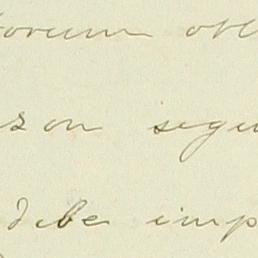 orum
son segu
debe imp